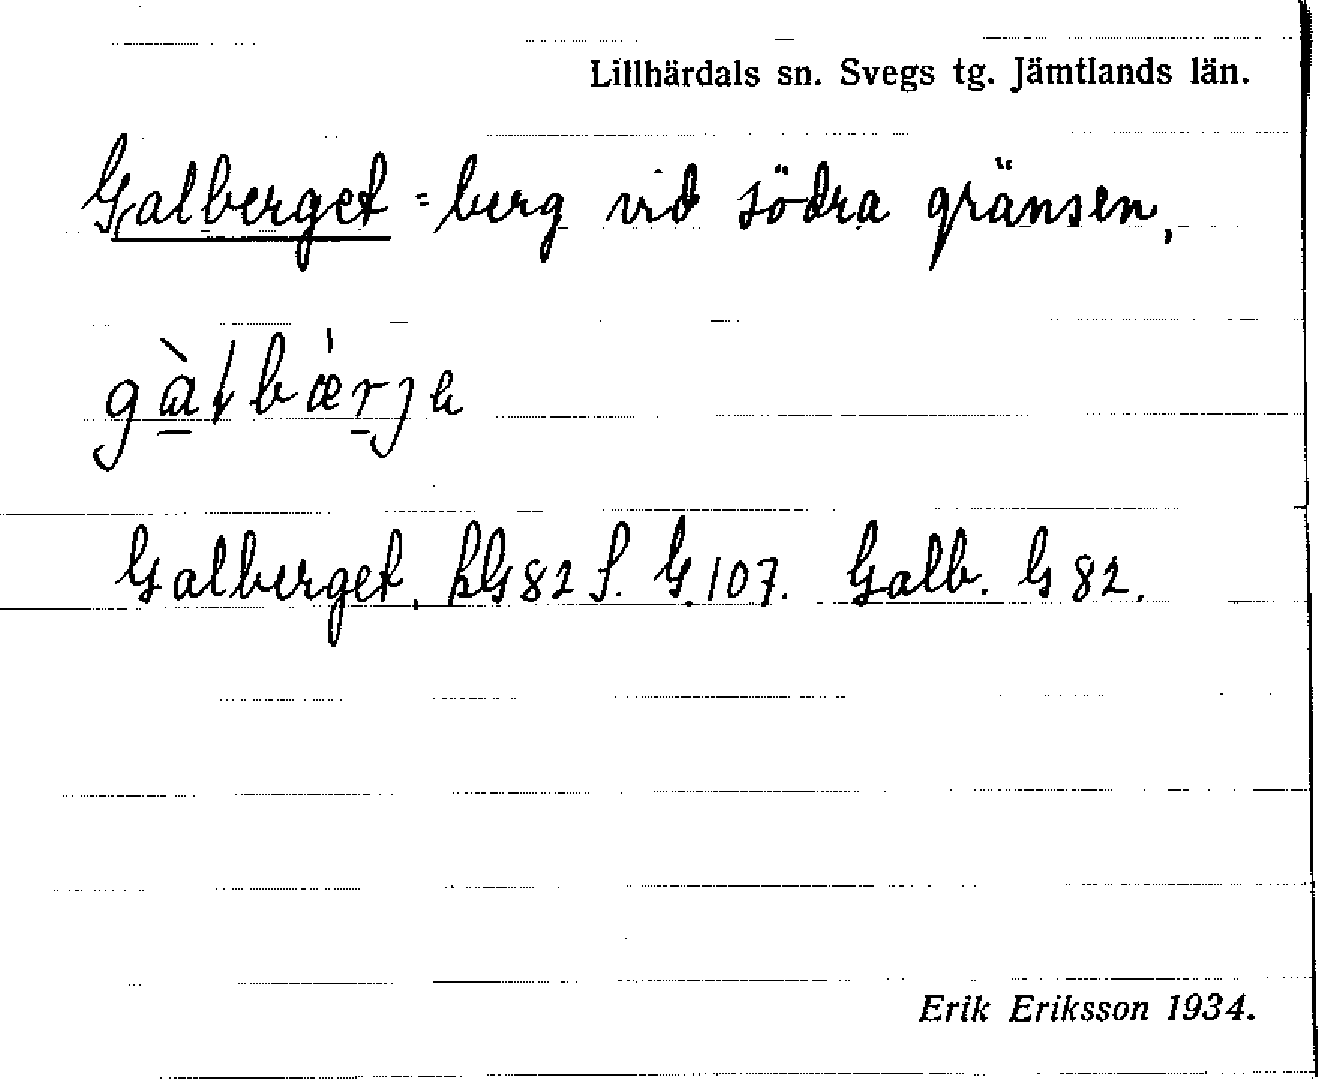 Lillhärdals sn. Svegs tg. Jämtlands län.
Galberget = berg vid södra gränsen,
gàłbæ̀rje
Galberget, kG 82 S. G. 107. Galb. G 82.
Erik Eriksson 1934.